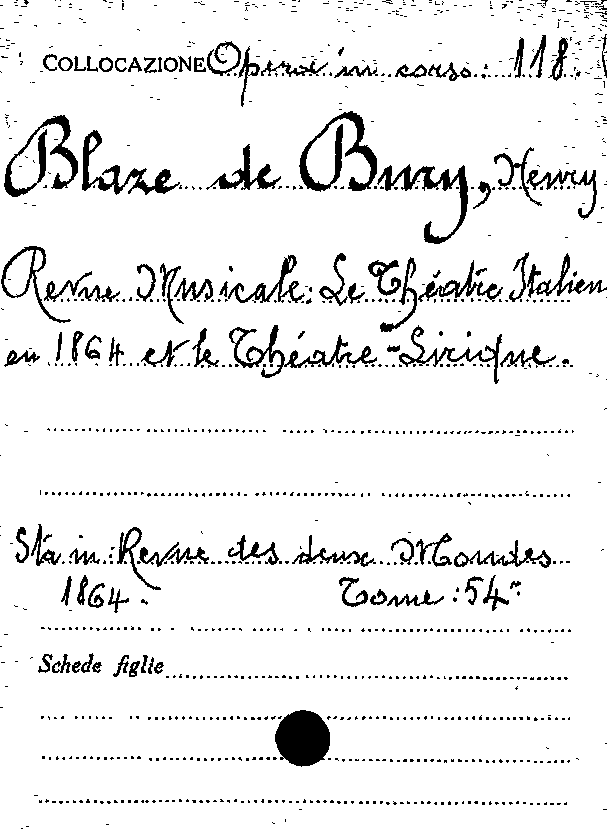 COLLOCAZIONE Opere in corso: 118.
Blaze de Bury, Henry
Revue Musicale: Le Théatre Italien
en 1864 et le Théatre-Lirique.
Sta in: Revue des deux Mondes
1864. Tome: 54º
Schede figlie